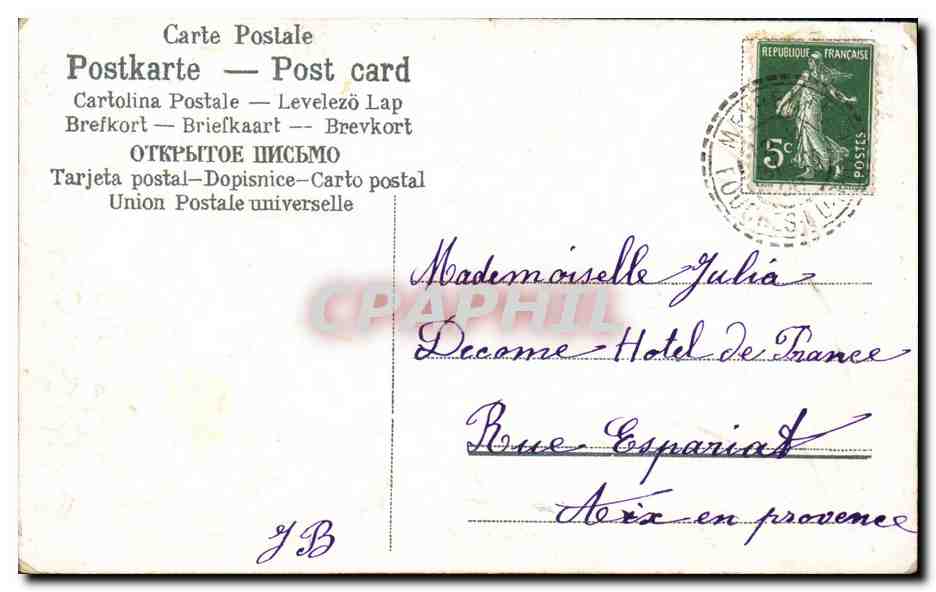 Carte Postale
Postkarte — Post card
Cartolina Postale — Levelezö Lap
Brefkort — Briefkaart -- Brevkort
ОТКРЫТОЕ ПИСЬМО
Tarjeta postal—Dopisnice—Carto postal
Union Postale universelle
REPUBLIQUE FRANÇAISE
5c
POSTES
Mademoiselle Julia
Decome Hotel de France
Rue Espariat
Aix en provence
JB
CPAPHIL